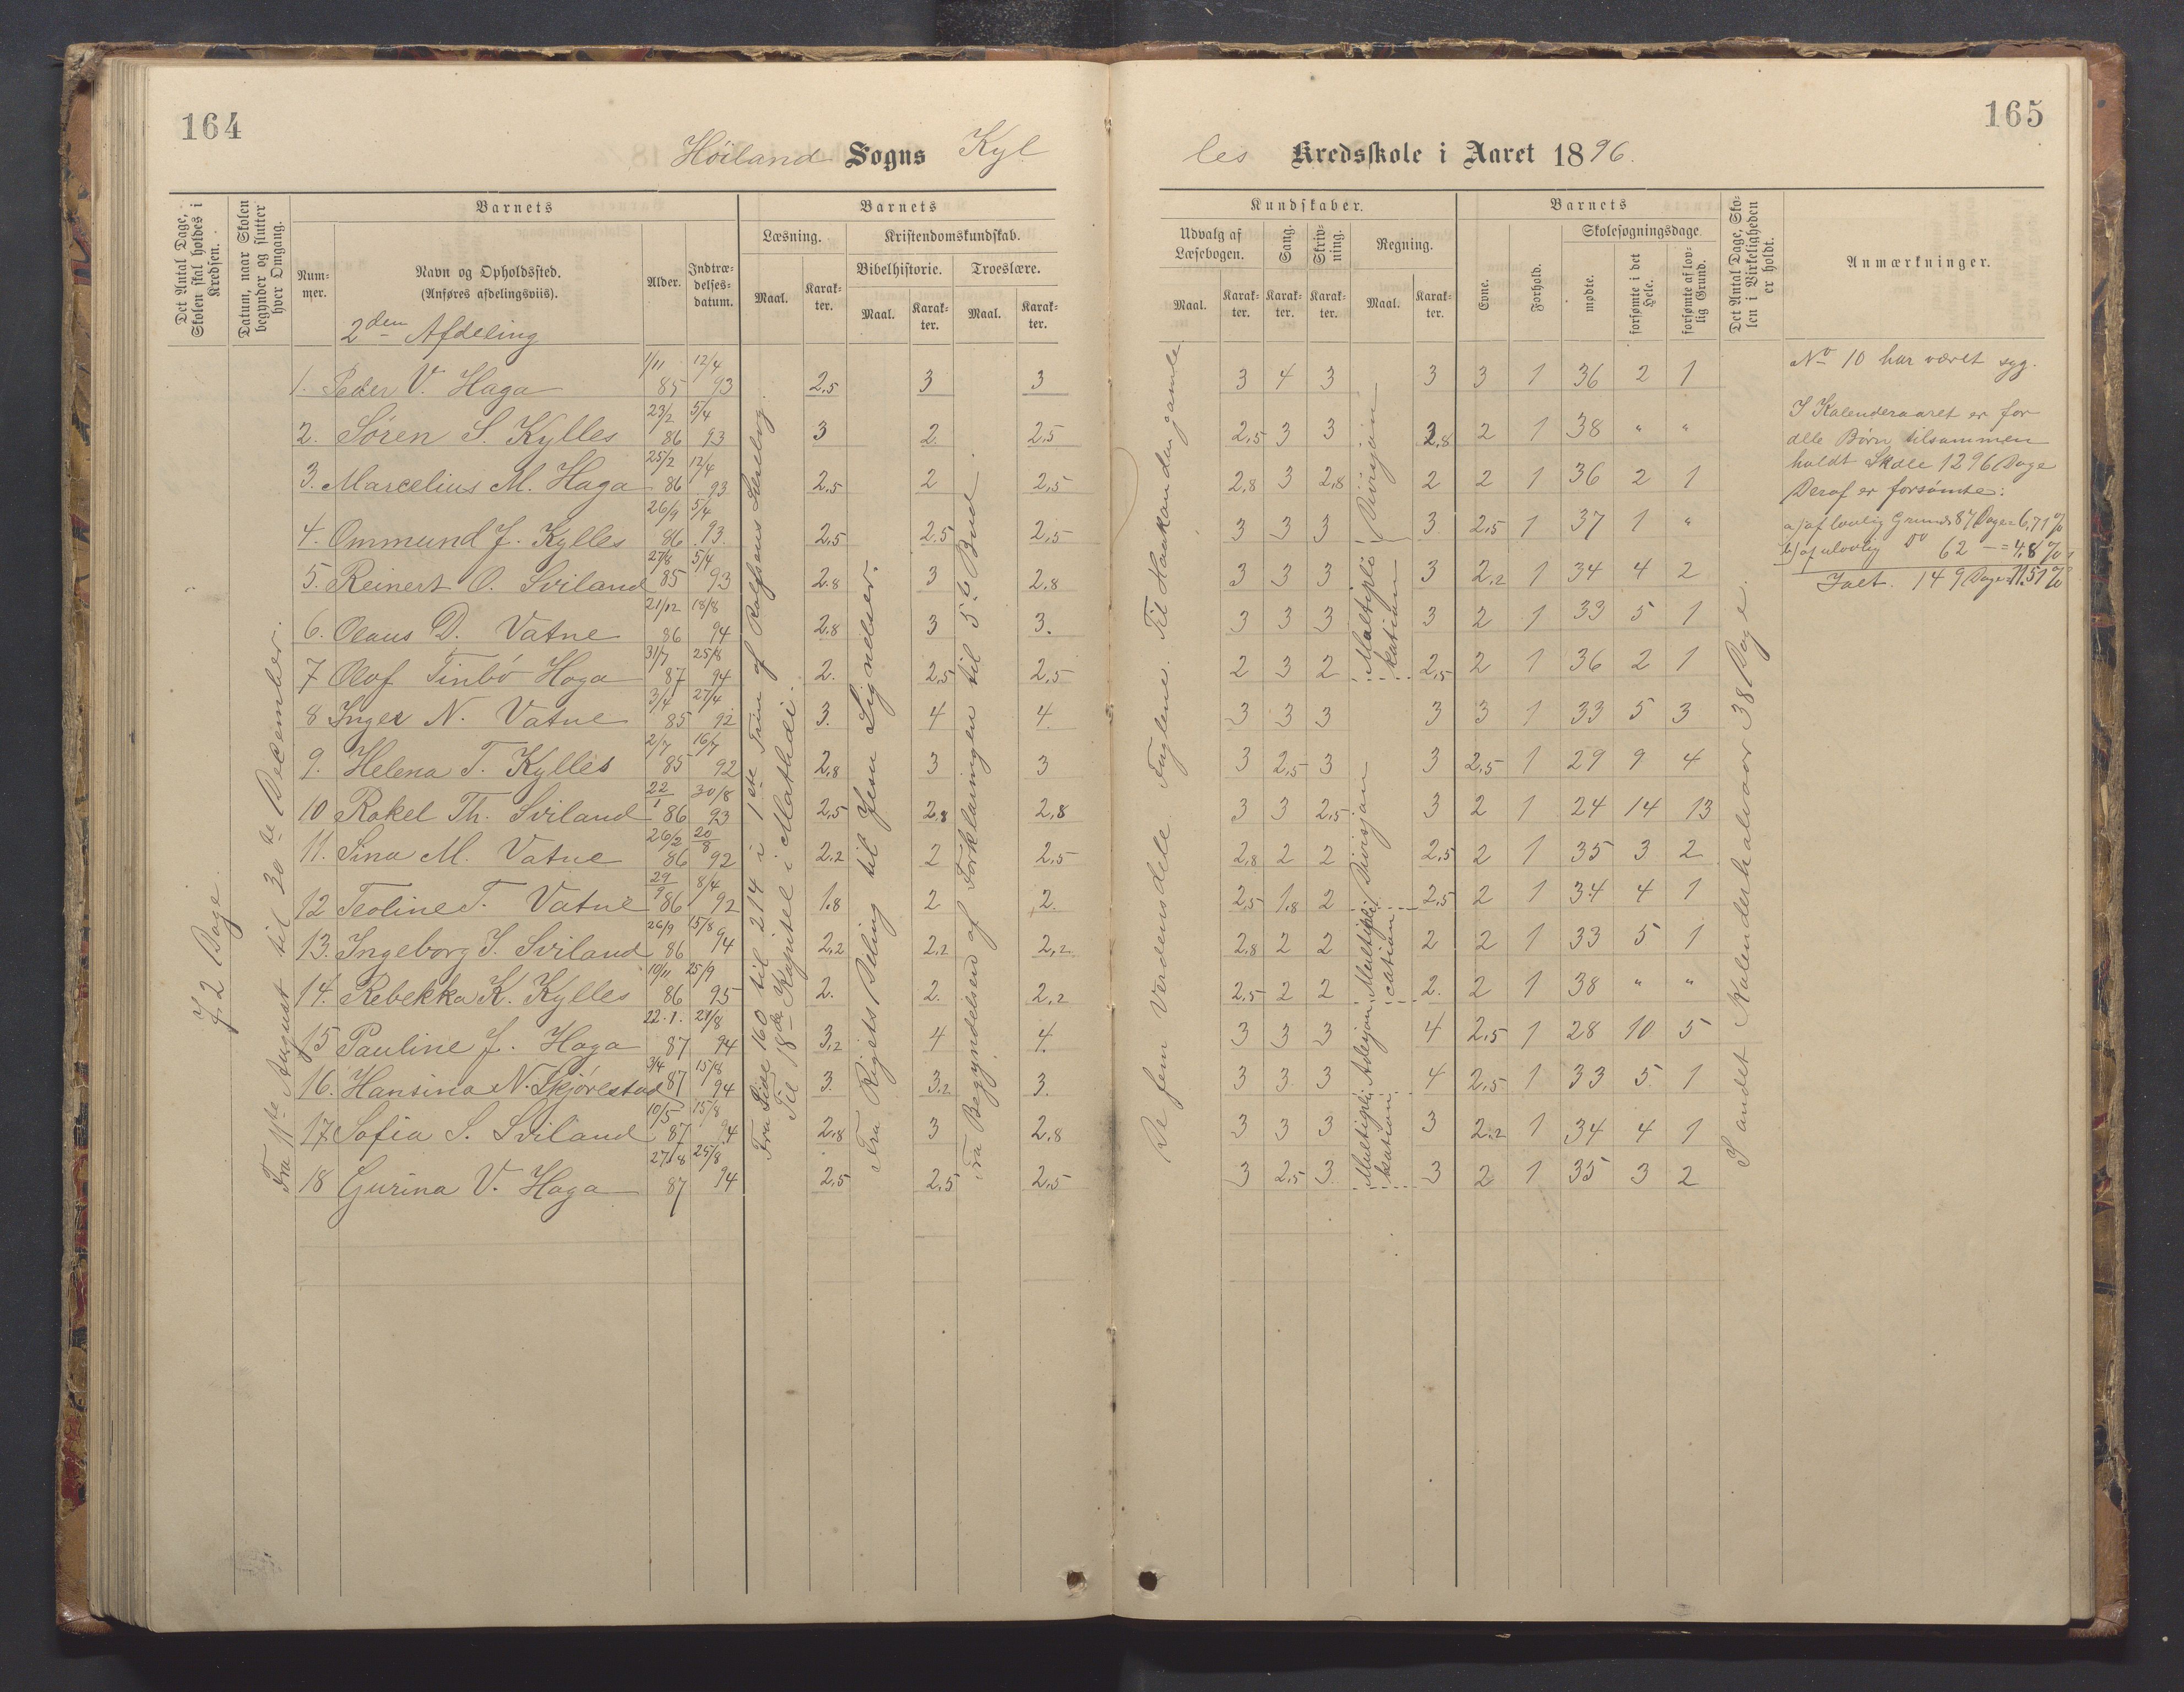 164
Høiland Sogns Kyl
Det Antal Dage, Skolen skal holdes i Kredsen.
Datum, naar Skolen begynder og slutter hver Omgang.
Barnets
Num-mer.
Navn og Opholdssted.
(Anføres afdelingsviis).
Alder.
Indtræ-delses-datum.
Barnets
Læsning.
Maal.
Karak-ter.
Kristendomskundskab.
Bibelhistorie.
Maal.
Karak-ter.
Troeslære.
Maal.
Karak-ter.
2den Afdeling
1. Peder V. Haga 1/11 85 12/4 93 2,5 3 3
2. Søren S. Kylles 23/2 86 5/4 93 3 2. 2,5
3. Marcelius M. Haga 25/2 86 12/4 93 2,5 2 2,5
4. Ommund J. Kylles 26/9 86 5/4 93 2,5 2,5 2,5
5. Reinert O. Sviland 27/8 85 5/4 93 2,8 3 2,8
6. Olaus D. Vatne 21/12 86 18/8 94 2,8 3 3.
7 Olaf Tinbö Haga 31/7 87 25/8 94 2. 2,5 2,5
8 Inger N. Vatne 3/4 85 27/4 92 3. 4 4
9. Helena T. Kylles 2/7 85 16/7 92 2,8 3 3
10 Rakel Th. Sviland 22/1 86 30/8 93 2,5 2,8 2,8
11. Sina M. Vatne 26/2 86 20/8 92 2,2 2 2,5
12 Teoline T. Vatne 29/9 86 8/4 92 1,8 2 2.
13. Ingeborg I. Sviland 26/9 86 15/8 94 2,2 2,2 2,2
14. Rebekka K. Kylles 10/11 86 25/9 95 2. 2. 2,2
15 Pauline J. Haga 22.1. 87 21/8 94 3,2 4 4.
16. Hansina N. Skjørestad 3/4 87 15/8 94 3. 3,2 3.
17 Sofia S. Sviland 10/5 87 15/8 94 2,8 3 2,8
18 Gurina V. Haga 27/8 87 25/8 94 2,5 2,5 2,5
72 Dage.
Fra 11te August til 30te December.
Fra Side 160 til 214 i 1ste Trin af Rolfsens Læsebog.
Til 18de Kapitel i Mathæi.
Fra Rigets Deling til Jesu Lignelser.
Fra Begyndelsen af Forklaringen til 5te Bud.
165
les Kredsskole i Aaret 1896.
Kundskaber.
Udvalg af Læsebogen.
Maal.
Karak-ter.
Sang.
Karak-ter.
Skriv-ning.
Karak-ter.
Regning.
Maal.
Karak-ter.
Barnets
Evne.
Forhold.
Skolesøgningsdage.
mødte.
forsømte i det Hele.
forsømte af lov-lig Grund.
Det Antal Dage, Sko-len i Virkeligheden er holdt.
Anmærkninger.
3 4 3 3 3 1 36 2 1
2,5 3 3 2,8 2 1 38 " "
2,8 3 2,8 2 2 1 36 2 1
3 3 3 3 2,5 1 37 1 "
3 3 3 3 2,2 1 34 4 2
3 3 3 3 2 1 33 5 1
2 3 2 2,5 2 1 36 2 1
3 3 3 3 3 1 33 5 3
3 2,5 3 3 2,5 1 29 9 4
3 3 2,5 3 2 1 24 14 13
2,8 2 2 2,5 2 1 35 3 2
2,5 1,8 2 2,5 2 1 34 4 1
2,8 2 2 2 2 1 33 5 1
2,5 2 2 2. 2 1 38 " "
3 3 3 4 2,5 1 28 10 5
3 3 3 4 2,5 1 33 5 1
3 3 3 3 2,2 1 34 4 1
3 2,5 3 3 2 1 35 3 2
De fem Verdensdele. Fuglene. Til Haakon den gamle.
Multipli-kation
Divisjon
Multipli-cation
Divisjon
Adisjon
Multipli-kation
I andet Kalenderhalvaar 38 Dage.
No 10 har været syg.
I Kalenderaaret er for
alle Børn tilsammen
holdt Skole 1296 Dage
Deraf er forsömte:
a) af lovlig Grund 87 Dage = 6,71 %
b) af ulovlig Do 62 — = 4,8 %
Ialt. 149 Dage = 11,51 %